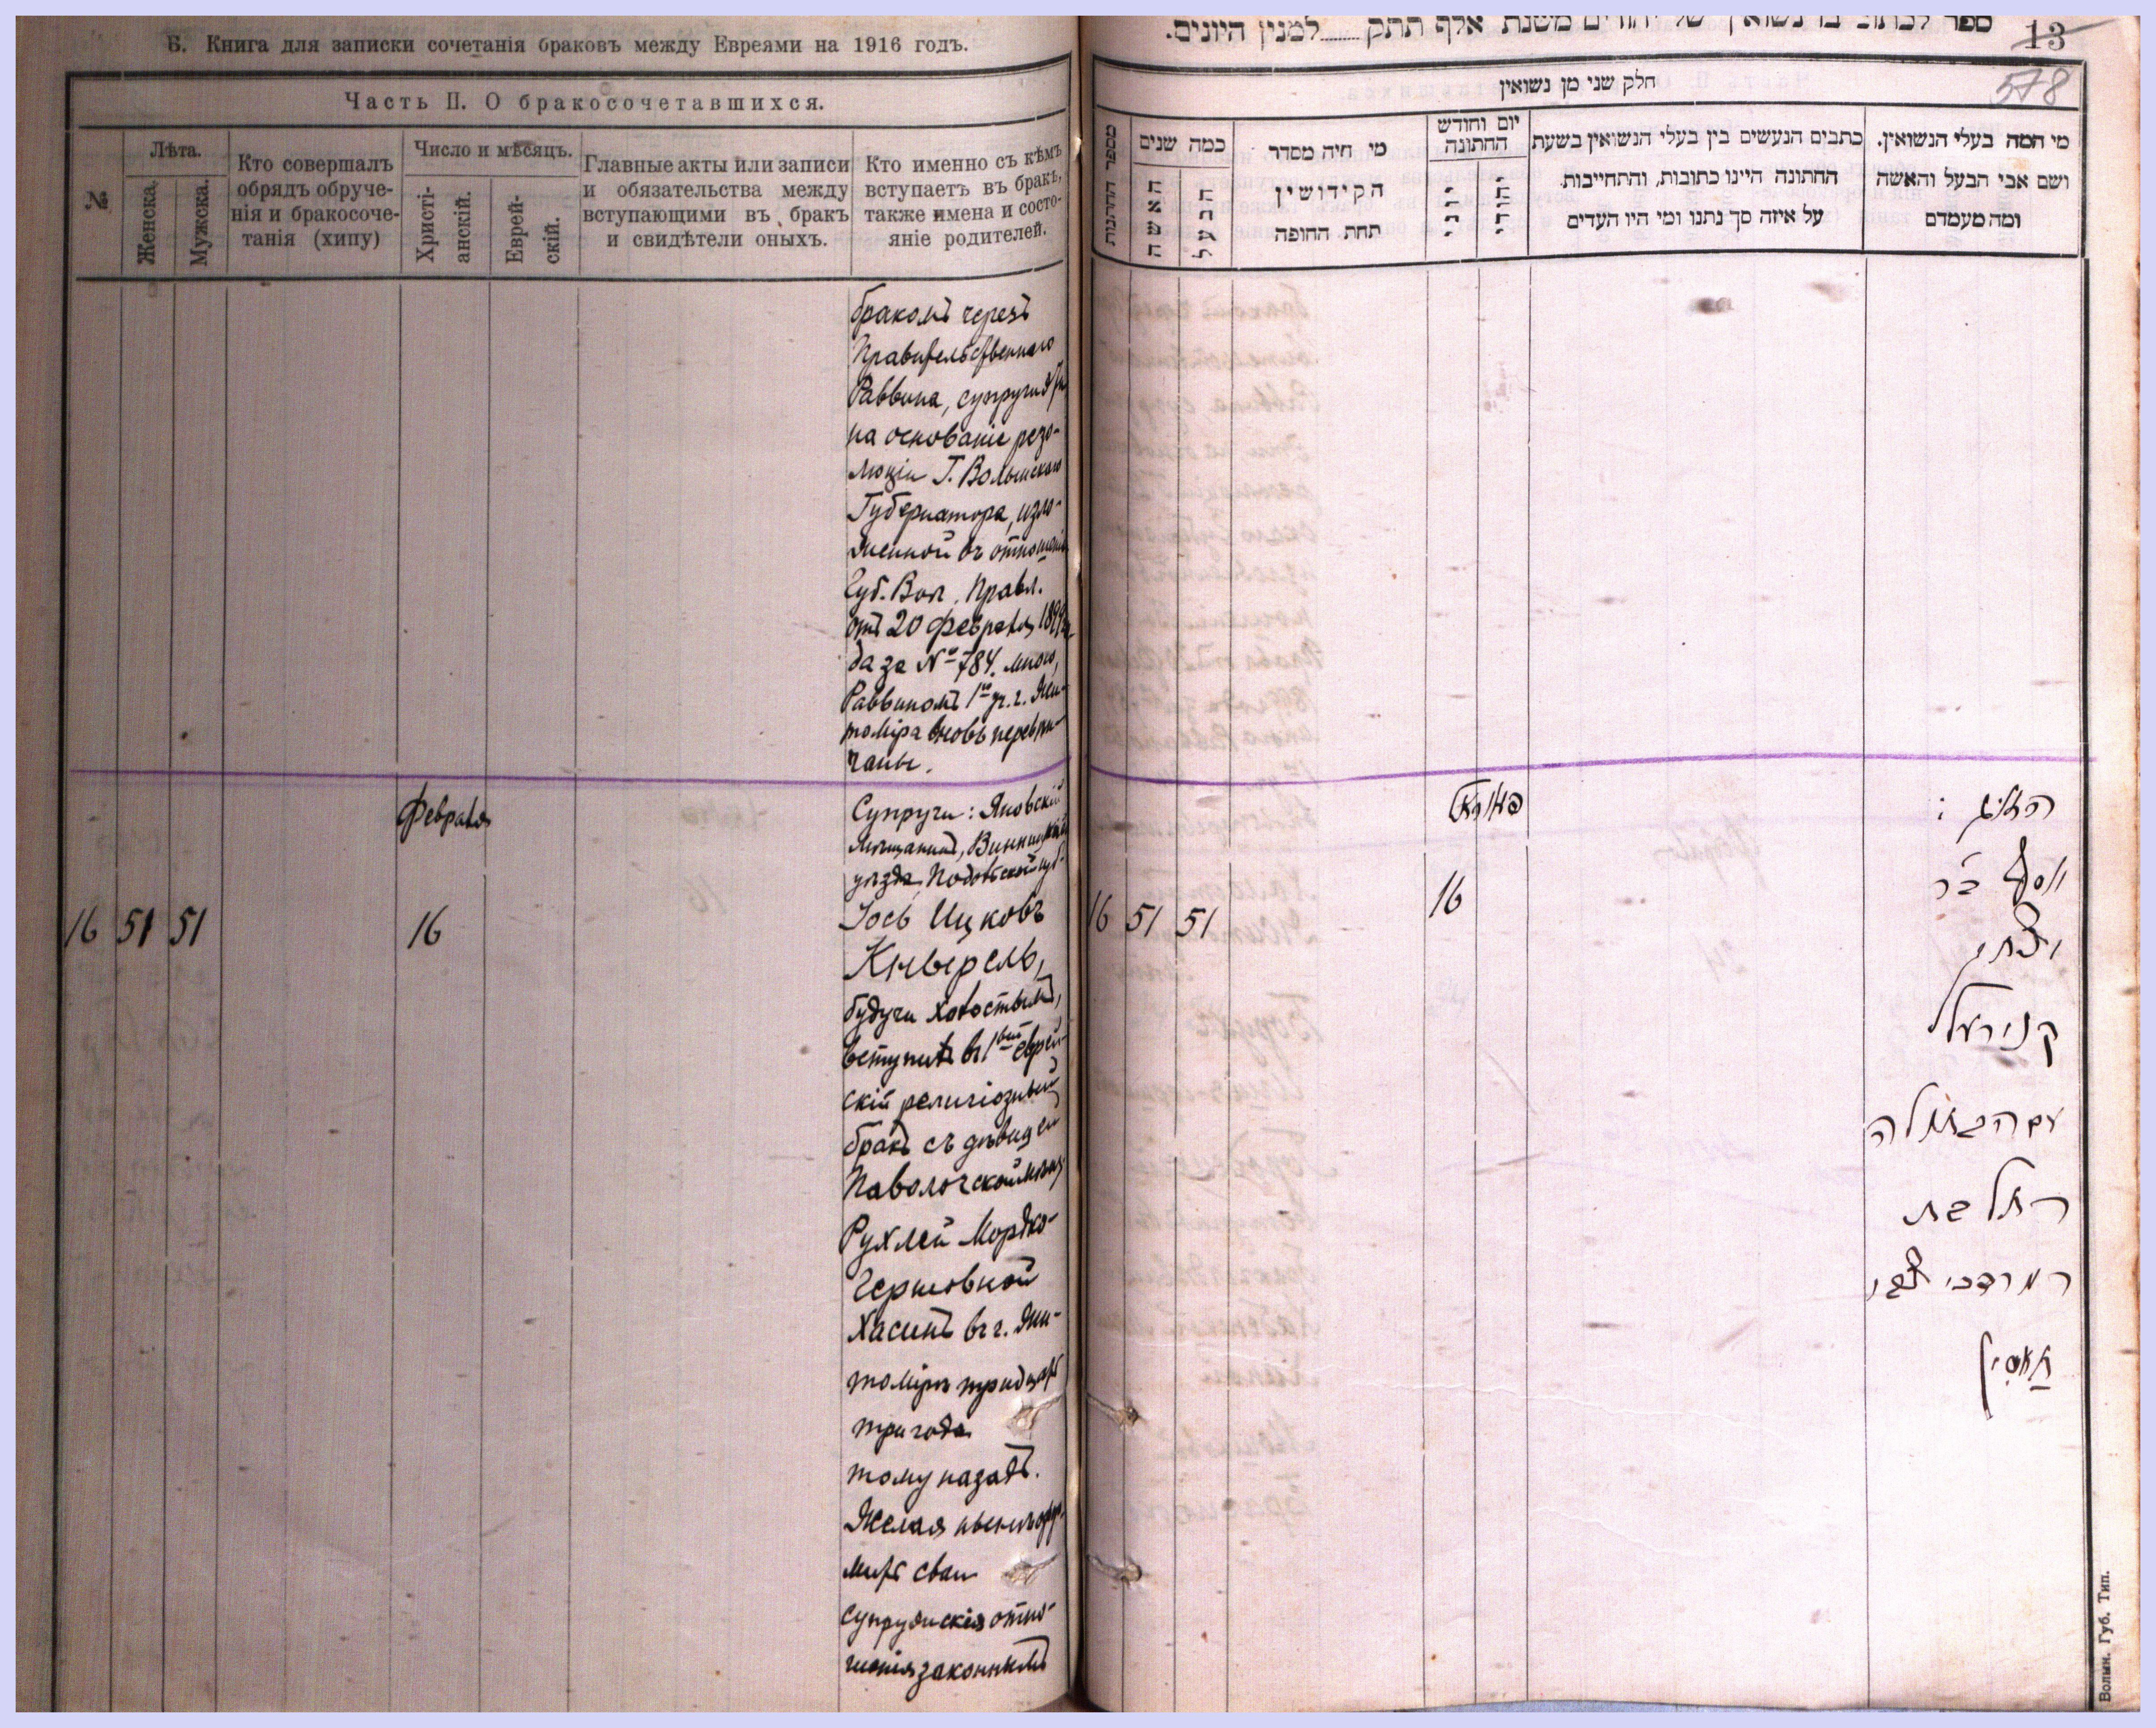 Б. Книга для записки сочетанія браковъ между Евреями на 1916 годъ.
Часть II. О бракосочетавшихся.
№
Лѣта.
Женска.
Мужска.
Кто совершалъ
обрядъ обруче-
нія и бракосоче-
танія (хипу)
Число и мѣсяцъ.
Христі-
анскій.
Еврей-
скій.
Главные акты или записи
и обязательства между
вступающими въ бракъ
и свидѣтели оныхъ.
Кто именно съ кѣмъ
вступаетъ въ бракъ,
также имена и состо-
яніе родителей.
бракомъ черезъ
Правительственнаго
Раввина, супруги
на основаніе резо-
люціи Г. Волынскаго
Губернатора, изло-
женной въ отношеніи
Губ. Вол. Правл.
отъ 20 февраля
да за № 784. мною,
Раввиномъ 1го уч. г. Жи-
томіра вновь перевѣн-
чаны.
Февраля
Супруги: Яновскій
мѣщанинъ, Винницкаго
уѣзда, Подольской губ.
16 51 51 16
Іось Ицковъ
Кнырель,
будучи холостымъ,
вступилъ въ 1вый еврей-
скій религіозный
бракъ съ дѣвицей
Паволочской мѣщ.
Рухлей Мордко-
Гершовной
Хасинъ въ г. Жи-
томірѣ тридцать
три года
тому назадъ.
Желая нынѣ офор-
мить свои
супружескія отно-
шенія законнымъ
13
578
למנין היונים.
חלק שני מן נשואין
מספר החתונות
כמה שנים
האשה
הבעל
מי היה מסדר
הקידושין
תחת החופה
יום וחודש
החתונה
יוני
יהודי
כתבים הנעשים בין בעלי הנשואין בשעת
החתונה היינו כתובות, והתחייבות
על איזה סך נתנו ומי היו העדים
מי המה בעלי הנשואין.
ושם אבי הבעל והאשה
ומה מעמדם
16 51 51 16
יוסף בר
יצחק
קנירעל
עם הבתולה
רחל בת
ר מרדכי צבי
חאסין
Волын. Губ. Тип.